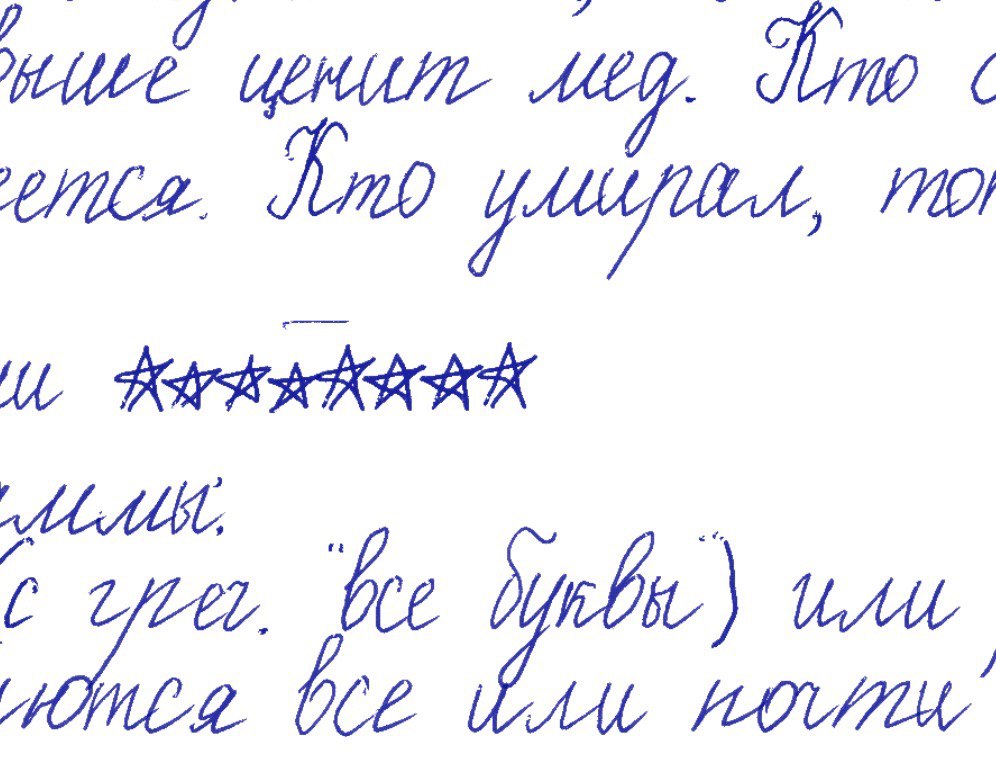 выше ценит мед. Кто с
еется. Кто умирал, тот
ии ********
аммы.
(с греч. "все буквы") или
аются все или почти